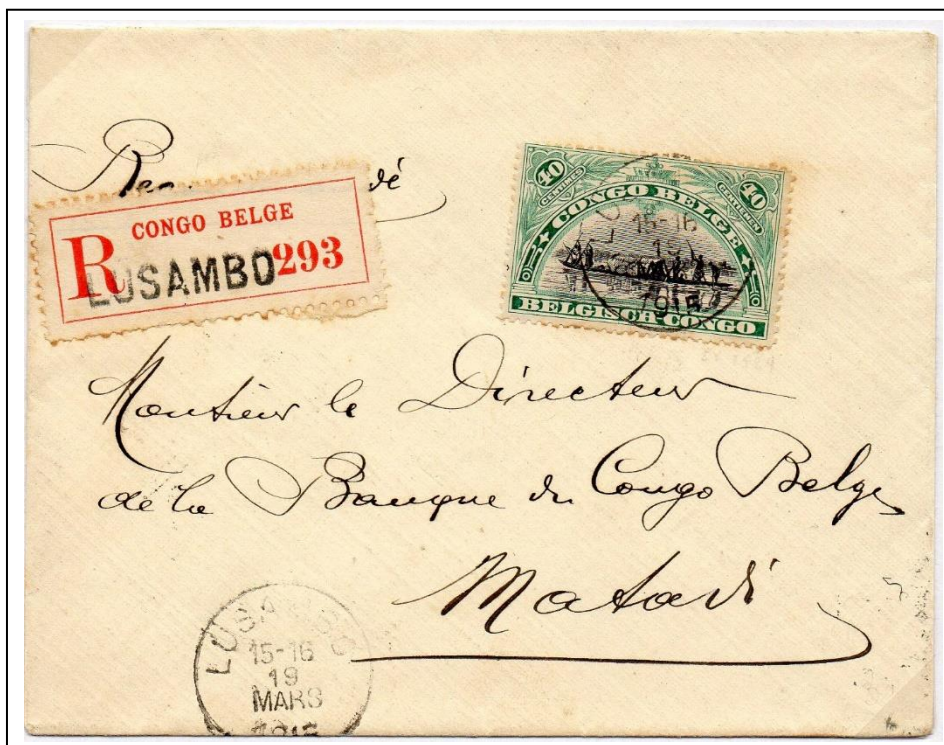 CONGO BELGE
R 293
LUSAMBO
40 40
CENTIMES CENTIEMEN
CONGO BELGE
BELGISCH-CONGO
15-16
1915
Monsieur le Directeur
de la Banque du Congo Belge
Matadi
LUSAMBO
15-16
19
MARS
1915